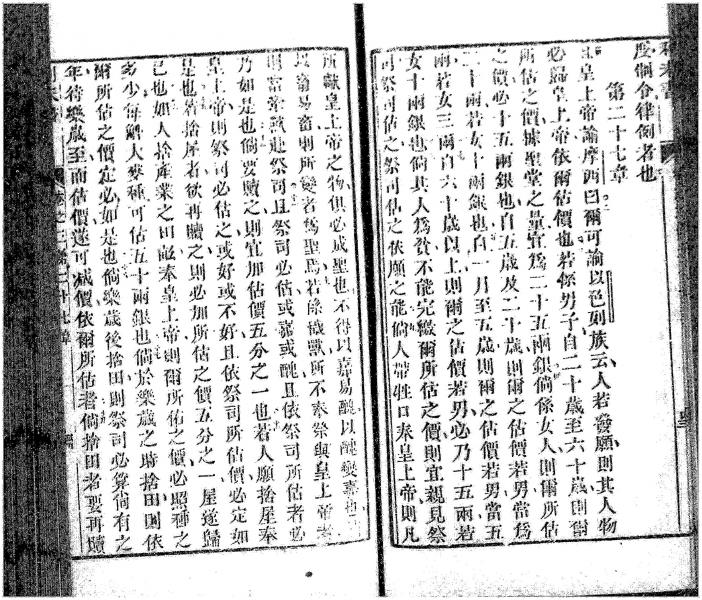 度例令律例者也
第二十七章
皇上帝諭摩西曰爾可諭以色列族云人若發願則其人物
必歸皇上帝依爾估價也若係男子自二十歲至六十歲則爾
所估之價據聖堂之量宜為二十五兩銀倘係女人則爾所估
之價必十五兩銀也自五歲及二十歲則爾之估價若男當為
二十兩若女十兩銀也自一月至五歲則爾之估價若男當五
兩若女三兩自六十歲以上則爾之估價若男必乃十五兩若
女十兩銀也倘其人為貧不能完繳爾所估之價則宜親見祭
司祭司估之祭司估之依願之能倘人帶牲口奉皇上帝則凡
所獻皇上帝之物俱必成聖也不得以嘉易醜以醜變嘉也
以畜易畜則所變者為聖焉若係穢獸所不奉祭與皇上帝者
則當牽獸赴祭司且祭司必估或嘉或醜且依祭司所估者必
乃如是也倘要贖之則宜加估價五分之一也若人願捨屋奉
皇上帝則祭司必估之或好或不好且依祭司所估價必定如
是也若捨屋者欲再贖之則必加所估之價五分之一屋遂歸
己也如人捨產業之田畝奉皇上帝則爾所估之價必照種之
多少每麰大麥種可估五十兩銀也倘於樂歲之時捨田則依
爾所估之價定必如是也倘樂歲後捨田則祭司必算倘有之
年待樂歲至而估價遂可減價依爾所估者倘捨田者要再贖
卷之三第二十七章